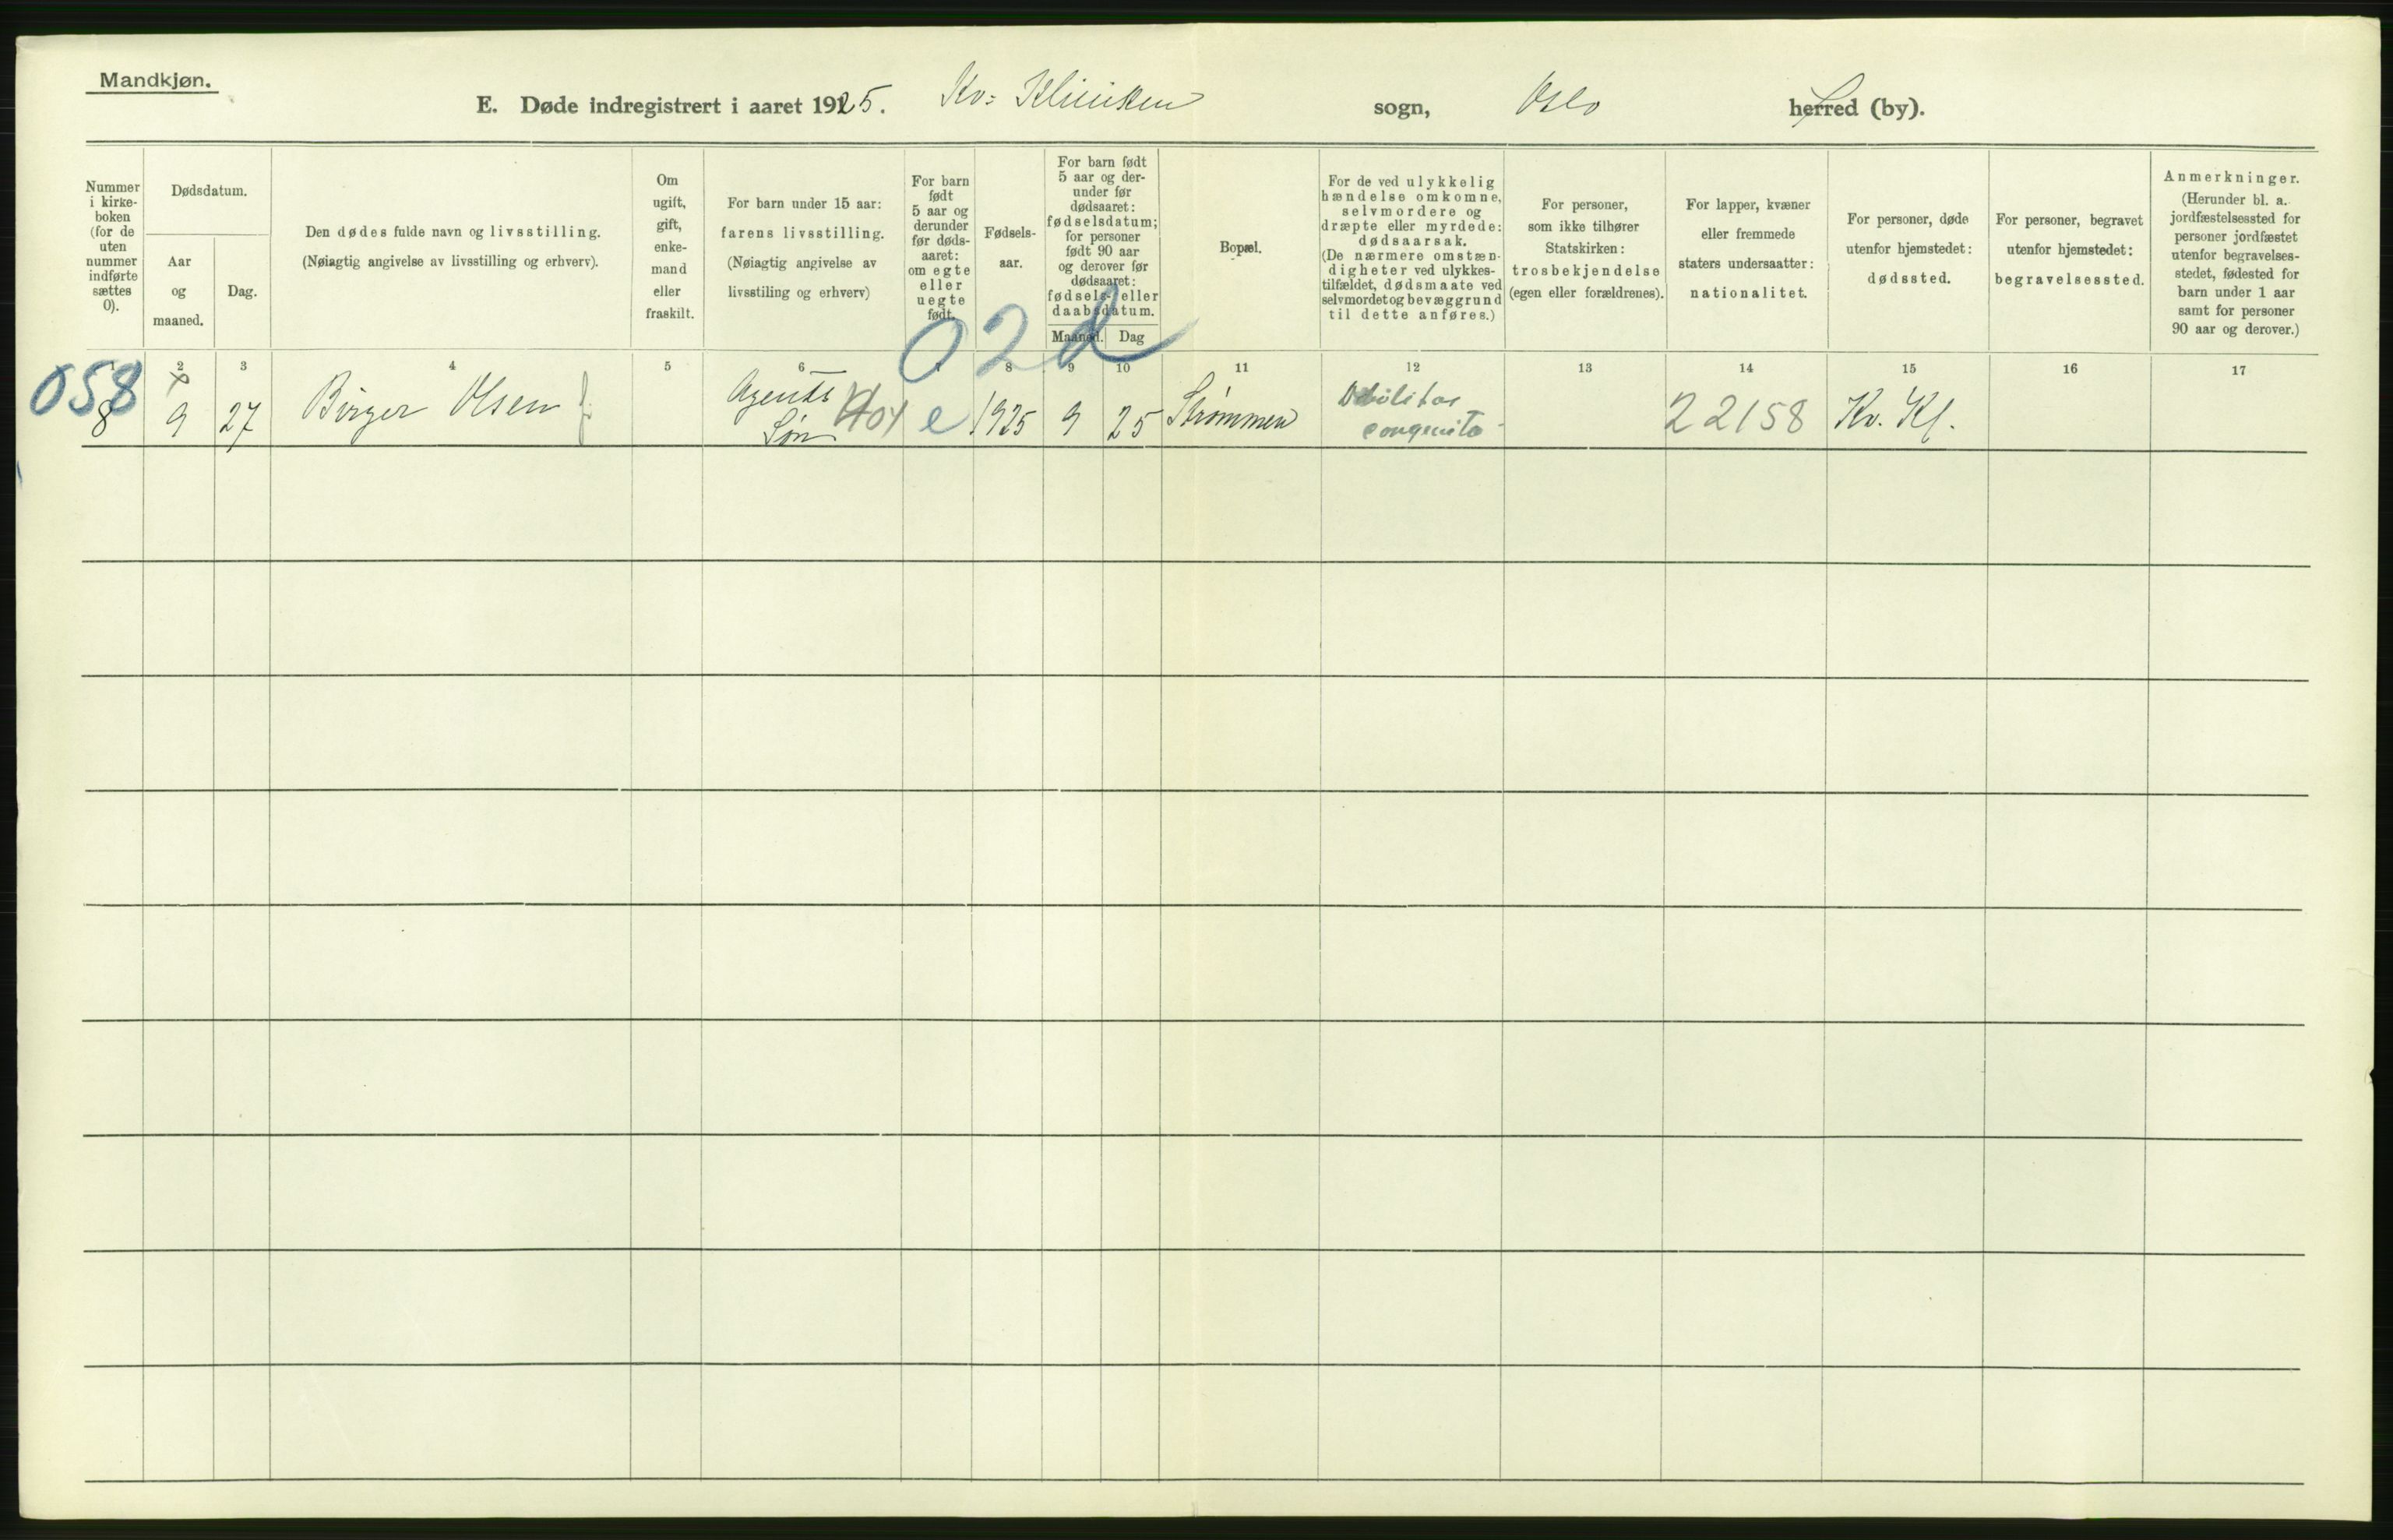 Mandkjøn.
E. Døde indregistrert i aaret 1925. Kv: Kliniken sogn, Oslo herred (by).
Nummer
i kirke-
boken
(for de
uten
nummer
indførte
sættes
0).
Dødsdatum.
Aar
og
maaned.
Dag.
Den dødes fulde navn og livsstilling.
(Nøiagtig angivelse av livsstilling og erhverv).
Om
ugift,
gift,
enke-
mand
eller
fraskilt.
For barn under 15 aar:
farens livsstilling.
(Nøiagtig angivelse av
livsstiling og erhverv)
For barn
født
5 aar og
derunder
før døds-
aaret:
om egte
eller
uegte
født.
Fødsels-
aar.
For barn født
5 aar og der-
under før
dødsaaret:
fødselsdatum;
for personer
født 90 aar
og derover før
dødsaaret:
fødsels- eller
daabsdatum.
Maaned.
Dag
Bopæl.
For de ved ulykkelig
hændelse omkomne,
selvmordere og
dræpte eller myrdede:
dødsaarsak.
(De nærmere omstæn-
digheter ved ulykkes-
tilfældet, dødsmaate ved
selvmordet og bevæggrund
til dette anføres.)
For personer,
som ikke tilhører
Statskirken:
trosbekjendelse
(egen eller forældrenes).
For lapper, kvæner
eller fremmede
staters undersaatter:
nationalitet.
For personer, døde
utenfor hjemstedet:
dødssted.
For personer, begravet
utenfor hjemstedet:
begravelsessted.
Anmerkninger.
(Herunder bl. a.
jordfæstelsessted for
personer jordfæstet
utenfor begravelses-
stedet, fødested for
barn under 1 aar
samt for personer
90 aar og derover.)
02d
1 2 3 4 5 6 7 8 9 10 11 12 13 14 15 16 17
058
8 9 27 Birger Olsen
Agents
Søn
e 1925 9 25 Strømmen
Debilitas
congenita
22158 Kv. Kl.